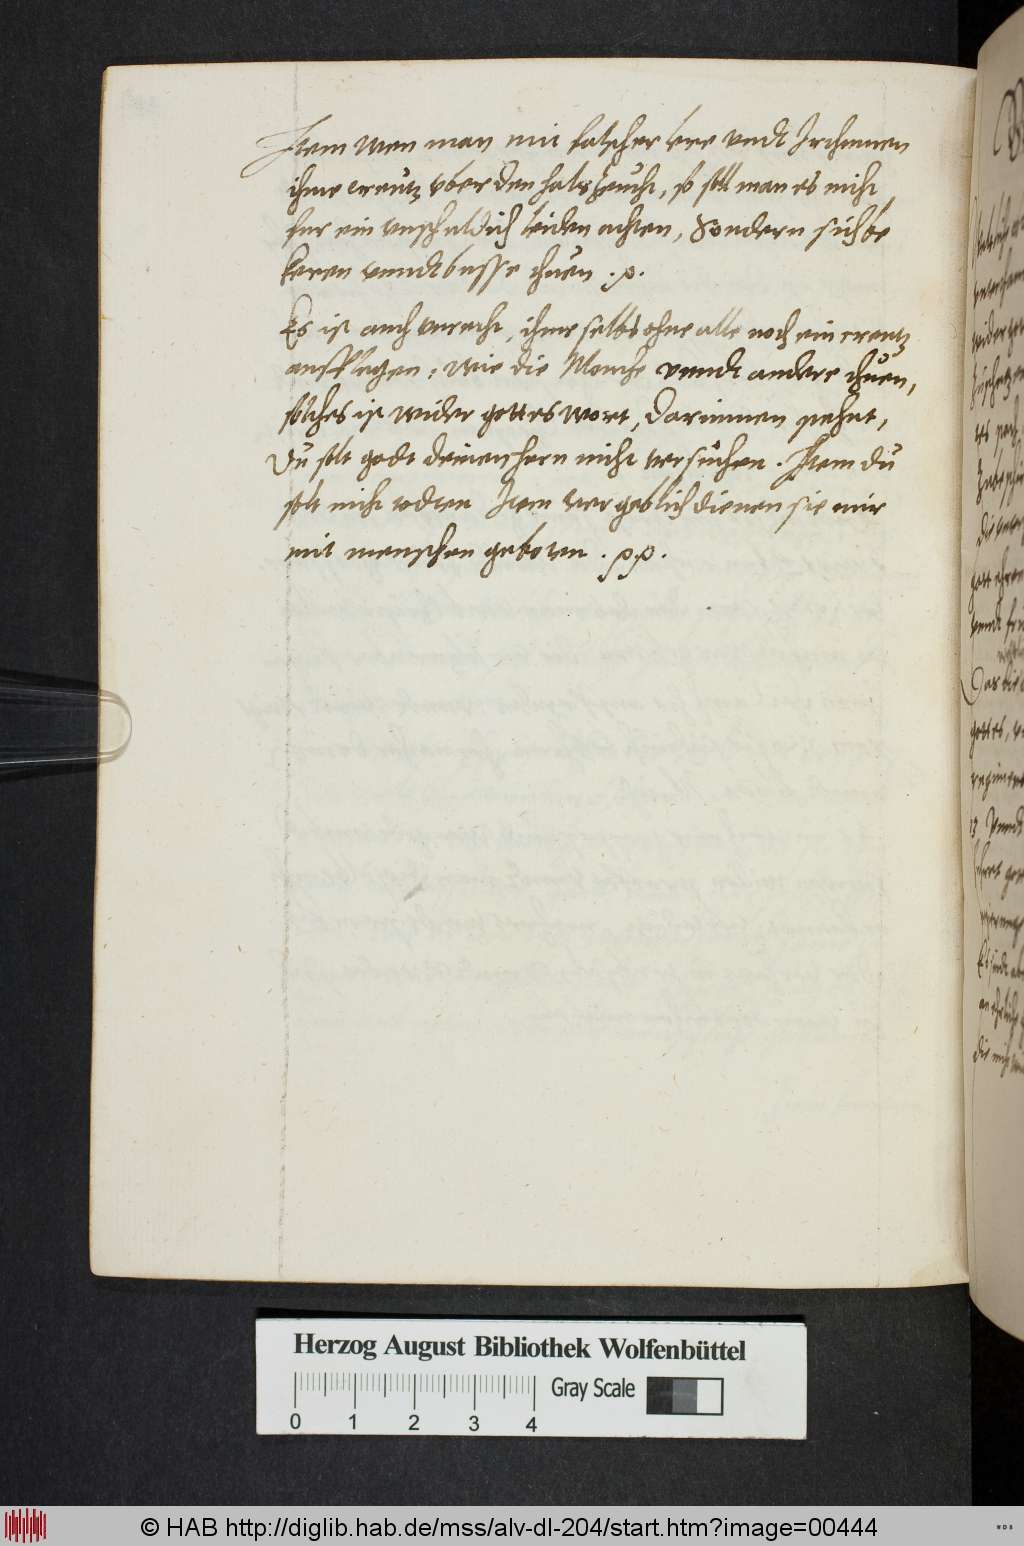 Item wen man mit falscher lere vndt Irthumen
ihme creutz vber den hals zeucht, so soll man es nicht
fur ein vnschuldich leiden achten, Sondern sich be
keren vnndt busse thuen .p.
Es ist auch vnrecht, ihme selbs ohne alle noth ein creutz
aufflegen, wie die Monche vnndt andere thuen,
solches ist wider gottes wort, darinnen stehet,
Du solt godt deinen hern nicht versuchen. Item du
solt nicht todten Item vergeblich dienen sie mir
mit menschen geboten .pp.
Herzog August Bibliothek Wolfenbüttel
0 1 2 3 4 Gray Scale
© HAB http://diglib.hab.de/mss/alv-dl-204/start.htm?image=00444